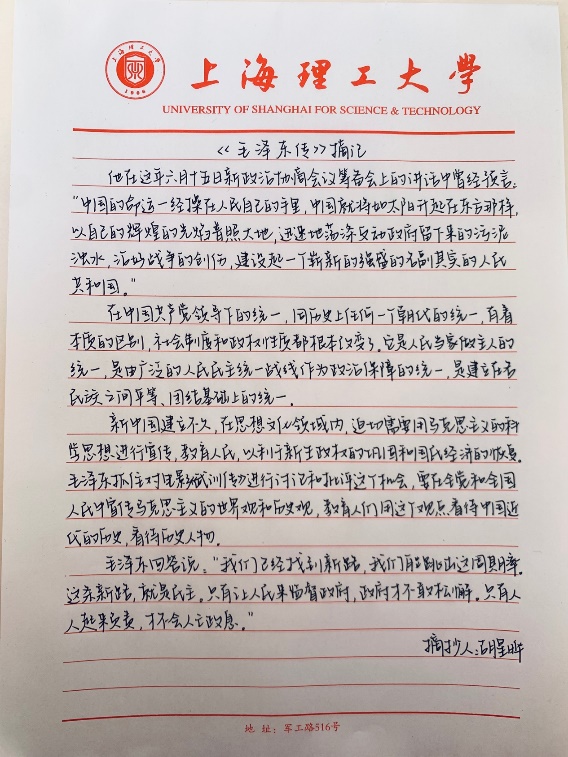 上海理工大學
1906
UNIVERSITY OF SHANGHAI FOR SCIENCE & TECHNOLOGY
《毛泽东传》摘记
他在这年六月十五日新政治协商会议筹备会上的讲话中曾经预言：
“中国的命运一经操在人民自己的手里，中国就将如太阳升起在东方那样，
以自己的辉煌的光焰普照大地，迅速地荡涤反动政府留下来的污泥
浊水，治好战争的创伤，建设起一个崭新的强盛的名副其实的人民
共和国。”
在中国共产党领导下的统一，同历史上任何一个朝代的统一，有着
本质的区别，社会制度和政权性质都根本改变了，它是人民当家做主人的
统一，是由广泛的人民民主统一战线作为政治保障的统一，是建立在各
民族之间平等、团结基础上的统一。
新中国建立不久，在思想文化领域内，迫切需要用马克思主义的科
学思想进行宣传，教育人民，以利于新生政权的巩固和国民经济的恢复。
毛泽东抓住对电影《武训传》进行讨论和批评这个机会，要在全党和全国
人民中宣传马克思主义的世界观和历史观，教育人们用这个观点看待中国近
代的历史，看待历史人物。
毛泽东回答说：“我们已经找到新路，我们能跳出这周期率。
这条新路，就是民主。只有让人民来监督政府，政府才不敢松懈。只有人
人起来负责，才不会人亡政息。”
摘抄人：胡星晔
地 址：军工路516号